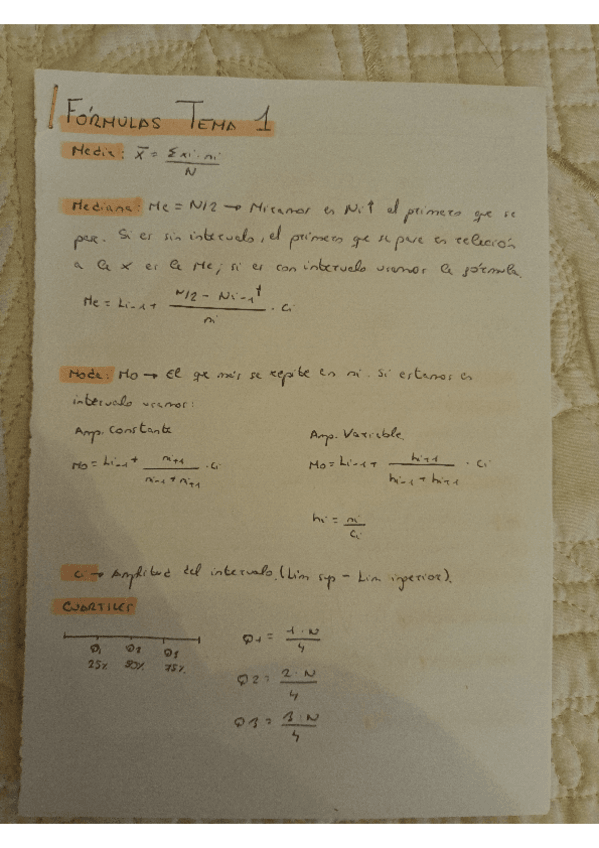 FÓRMULAS TEMA 1
Media: x̄ = Σxi·ni / N
Mediana: Me = N/2 → Miramos en Ni↑ el primero que se
pase. Si es sin intervalo, el primero que se pase en relación
a la x es la Me; si es con intervalo usamos la fórmula.
Me = Li-1 + (N/2 - Ni-1↑) / ni · Ci
Moda: Mo → El que más se repite en ni. Si estamos en
intervalo usamos:
Amp. Constante
Mo = Li-1 + ni+1 / (ni-1 + ni+1) · Ci
Amp. Variable
Mo = Li-1 + hi+1 / (hi-1 + hi+1) · Ci
hi = ni / Ci
Ci → Amplitud del intervalo. (Lim sup - Lim inferior).
CUARTILES
Q1 Q2 Q3
25% 50% 75%
Q1 = 1·N / 4
Q2 = 2·N / 4
Q3 = 3·N / 4